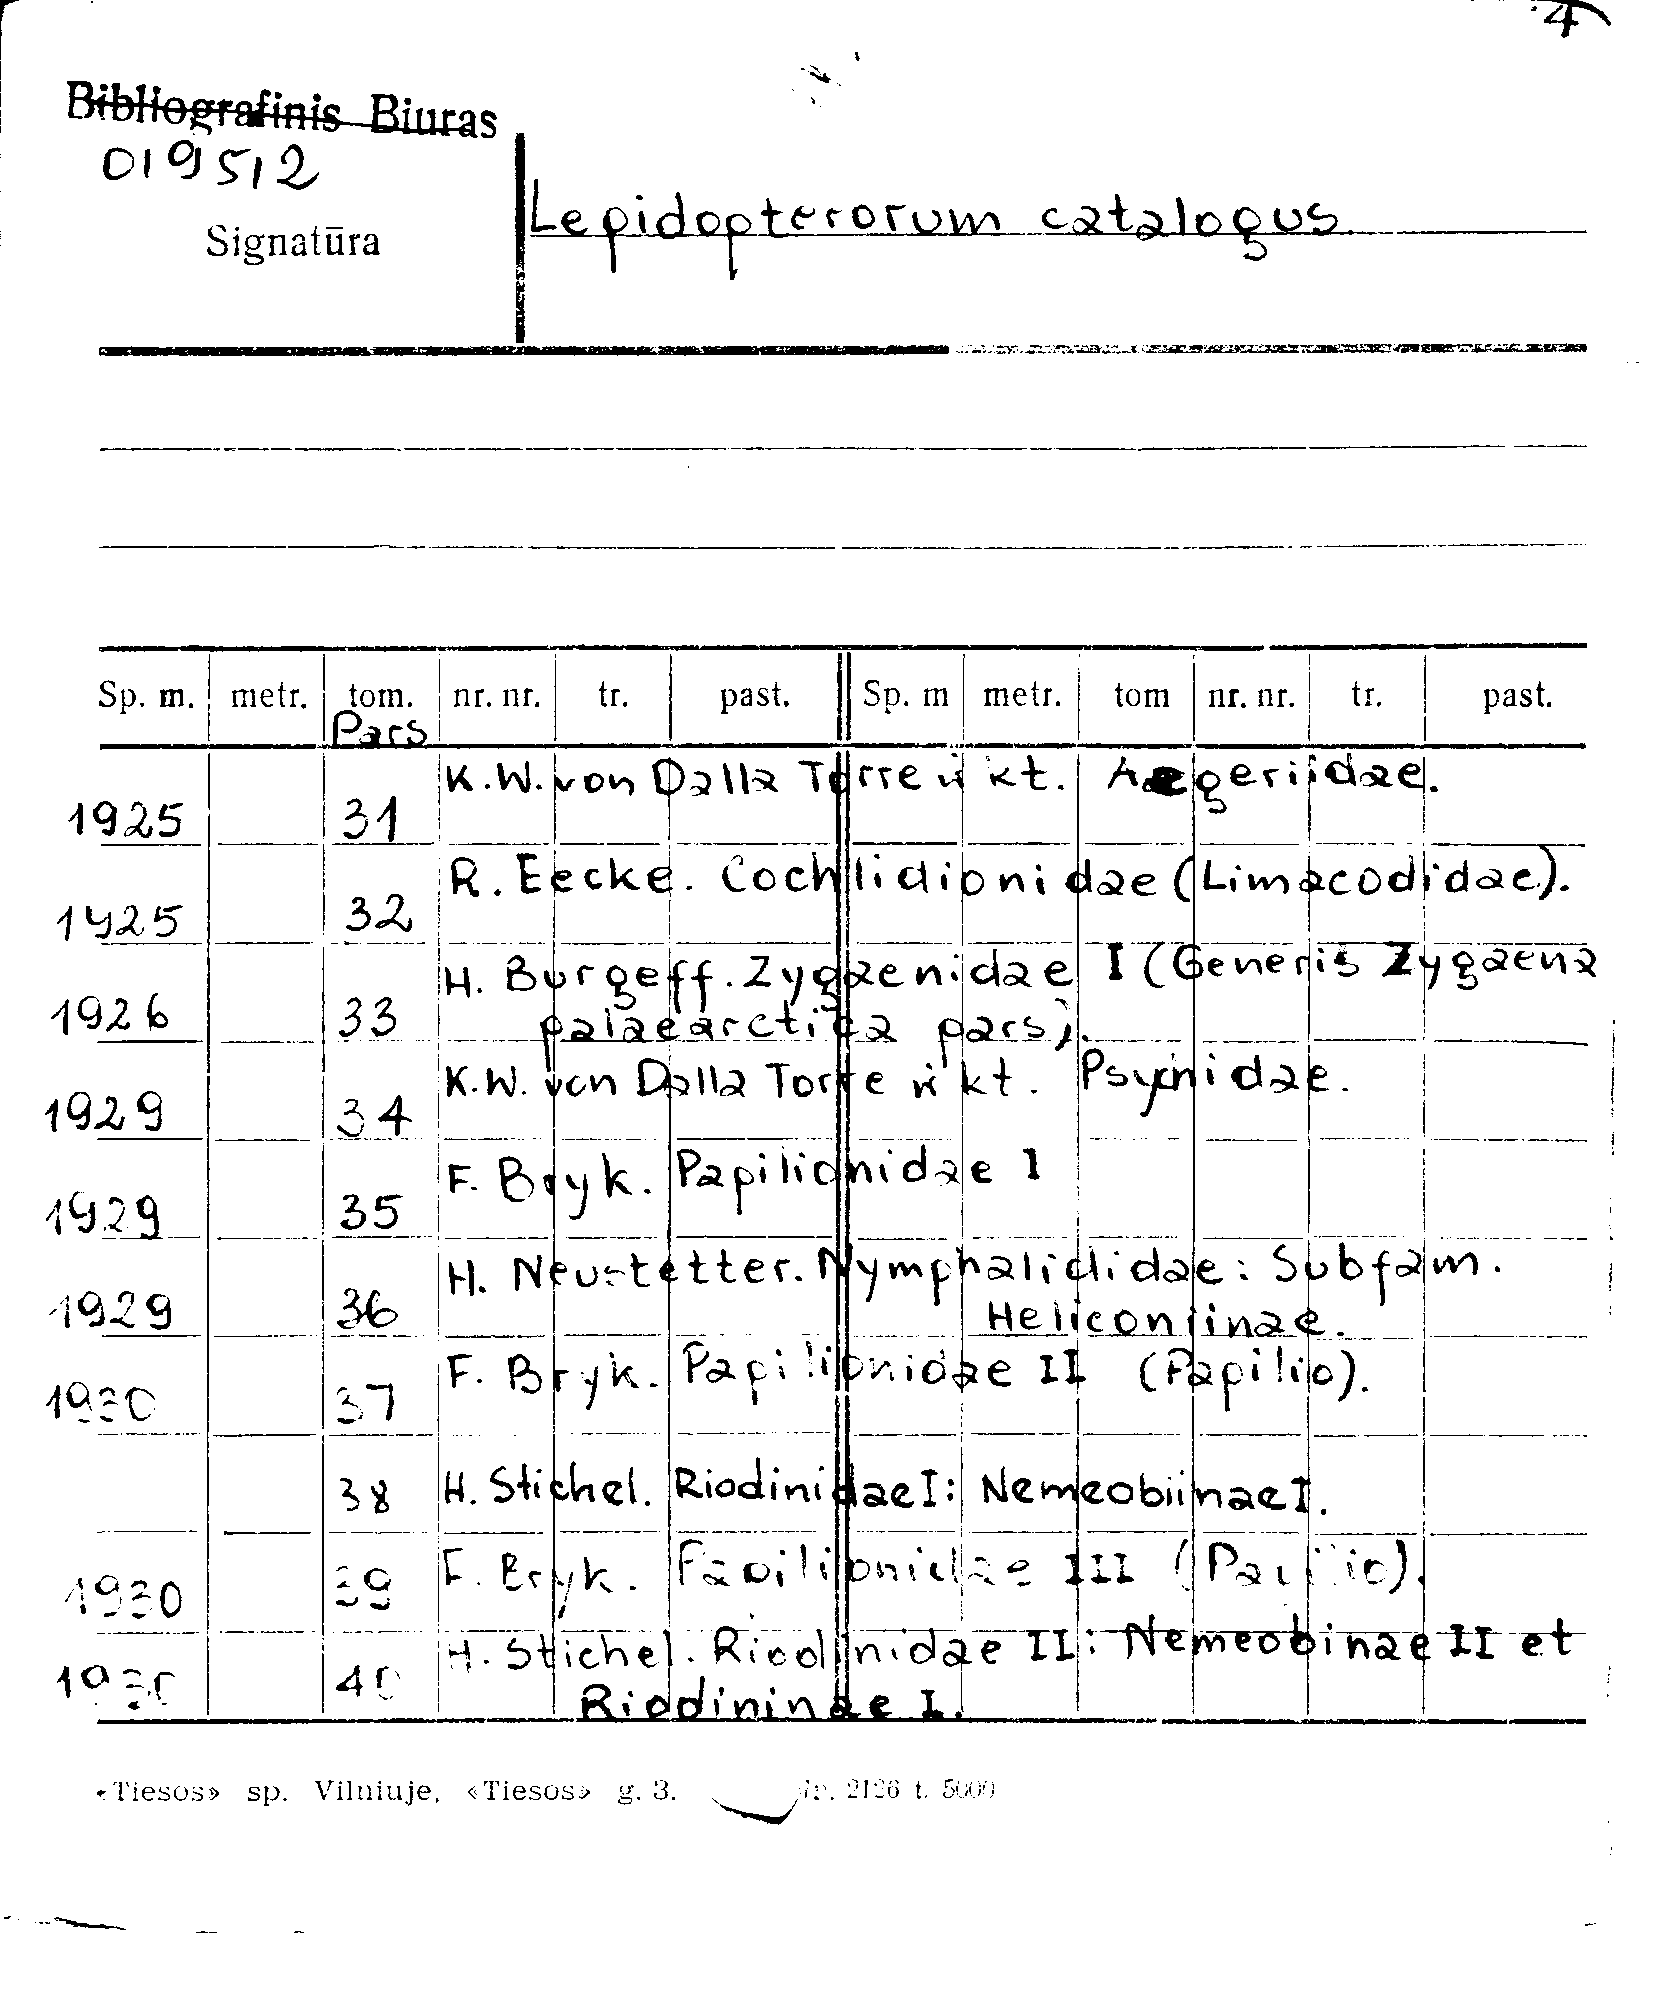 4
Bibliografinis Biuras
019512
Signatūra
Lepidopterorum catalogus.
Sp. m. metr. tom. nr. nr. tr. past. Sp. m metr. tom nr. nr. tr. past.
Pars
1925 31 K.W. von Dalla Torre ir kt. Aegeriidae.
1925 32 R. Eecke. Cochlidionidae (Limacodidae).
1926 33 H. Burgeff. Zygaenidae I (Generis Zygaena
palaearctica pars).
1929 34 K.W. von Dalla Torre ir kt. Psychidae.
1929 35 F. Bryk. Papilionidae I
1929 36 H. Neustetter. Nymphalididae: Subfam.
Heliconiinae.
1930 37 F. Bryk. Papilionidae II (Papilio).
38 H. Stichel. Riodinidae I: Nemeobiinae I.
1930 39 F. Bryk. Papilionidae III (Papilio).
1930 40 H. Stichel. Riodinidae II: Nemeobinae II et
Riodininae I.
«Tiesos» sp. Vilniuje, «Tiesos» g. 3. 2126 t. 5000